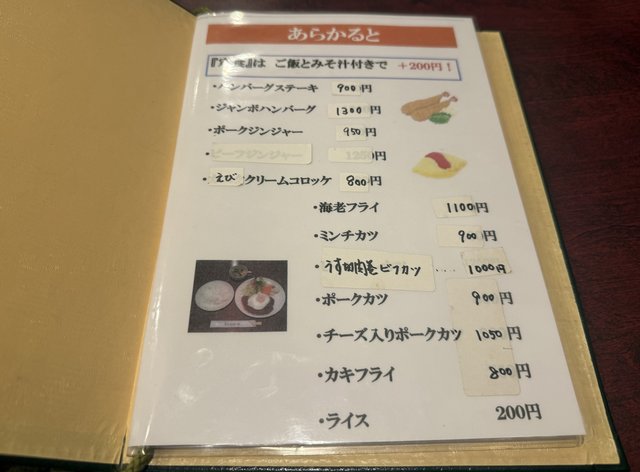 あらかると
『定食』は ご飯とみそ汁付きで +200円！
・ハンバーグステーキ 900円
・ジャンボハンバーグ 1300円
・ポークジンジャー 950円
・ビーフジンジャー 1250円
・えびクリームコロッケ 800円
・海老フライ 1100円
・ミンチカツ 900円
・うす切肉巻ビフカツ .... 1000円
・ポークカツ 900円
・チーズ入りポークカツ 1050円
・カキフライ 800円
・ライス 200円